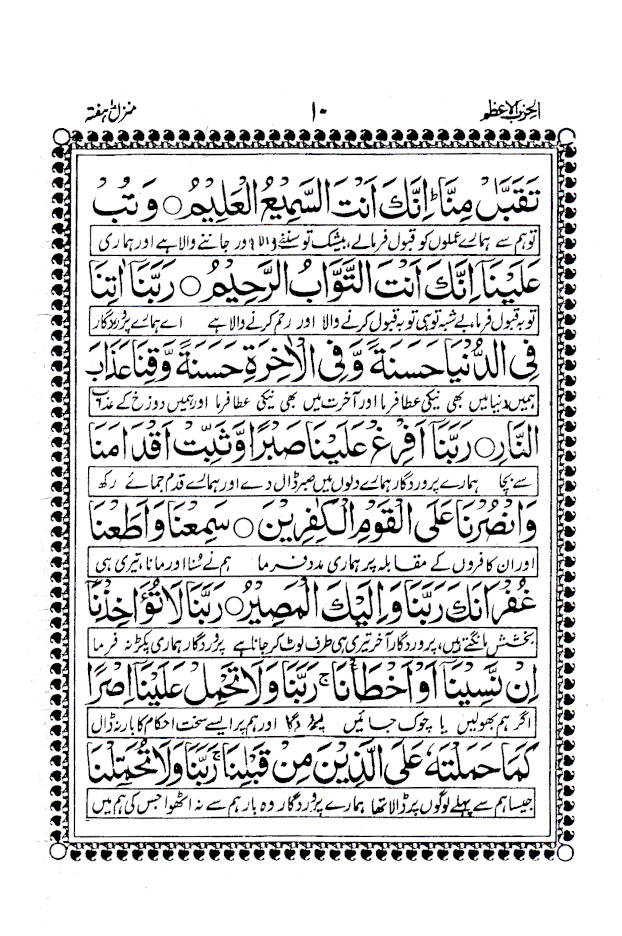 الحزب الاعظم ۱۰ منزل ہفتہ
تَقَبَّلْ مِنَّا ؕ اِنَّكَ اَنْتَ السَّمِيْعُ الْعَلِيْمُ ○ وَتُبْ
تو ہم سے ہمارے عملوں کو قبول فرمالے، بیشک تو سننے والا اور جاننے والا ہے اور ہماری
عَلَيْنَا ۚ اِنَّكَ اَنْتَ التَّوَّابُ الرَّحِيْمُ ○ رَبَّنَا اٰتِنَا
توبہ قبول فرما، بے شبہ تو ہی توبہ قبول کرنے والا اور رحم کرنے والا ہے اے ہمارے پروردگار
فِى الدُّنْيَا حَسَنَةً وَّفِى الْاٰخِرَةِ حَسَنَةً وَّقِنَا عَذَابَ
ہمیں دنیا میں بھی نیکی عطا فرما اور آخرت میں بھی نیکی عطا فرما اور ہمیں دوزخ کے عذاب
النَّارِ ○ رَبَّنَا اَفْرِغْ عَلَيْنَا صَبْرًا وَّثَبِّتْ اَقْدَامَنَا
سے بچا ہمارے پروردگار ہمارے دلوں میں صبر ڈال دے اور ہمارے قدم جمائے رکھ
وَانْصُرْنَا عَلَى الْقَوْمِ الْكٰفِرِيْنَ ○ سَمِعْنَا وَاَطَعْنَا
اور ان کافروں کے مقابلہ پر ہماری مدد فرما ہم نے سُنا اور مانا، تیری ہی
غُفْرَانَكَ رَبَّنَا وَاِلَيْكَ الْمَصِيْرُ ○ رَبَّنَا لَا تُؤَاخِذْنَا
بخشش مانگتے ہیں، پروردگار آخر تیری ہی طرف لوٹ کر جانا ہے پروردگار ہماری پکڑ نہ فرما
اِنْ نَّسِيْنَا اَوْ اَخْطَأْنَا ۚ رَبَّنَا وَلَا تَحْمِلْ عَلَيْنَا اِصْرًا
اگر ہم بھولیں یا چوک جائیں اور ہم پر ایسے سخت احکام کا بار نہ ڈال
كَمَا حَمَلْتَهٗ عَلَى الَّذِيْنَ مِنْ قَبْلِنَا ۚ رَبَّنَا وَلَا تُحَمِّلْنَا
جیسا ہم سے پہلے لوگوں پر ڈالا تھا ہمارے پروردگار وہ بار ہم سے نہ اٹھوا جس کی ہم میں